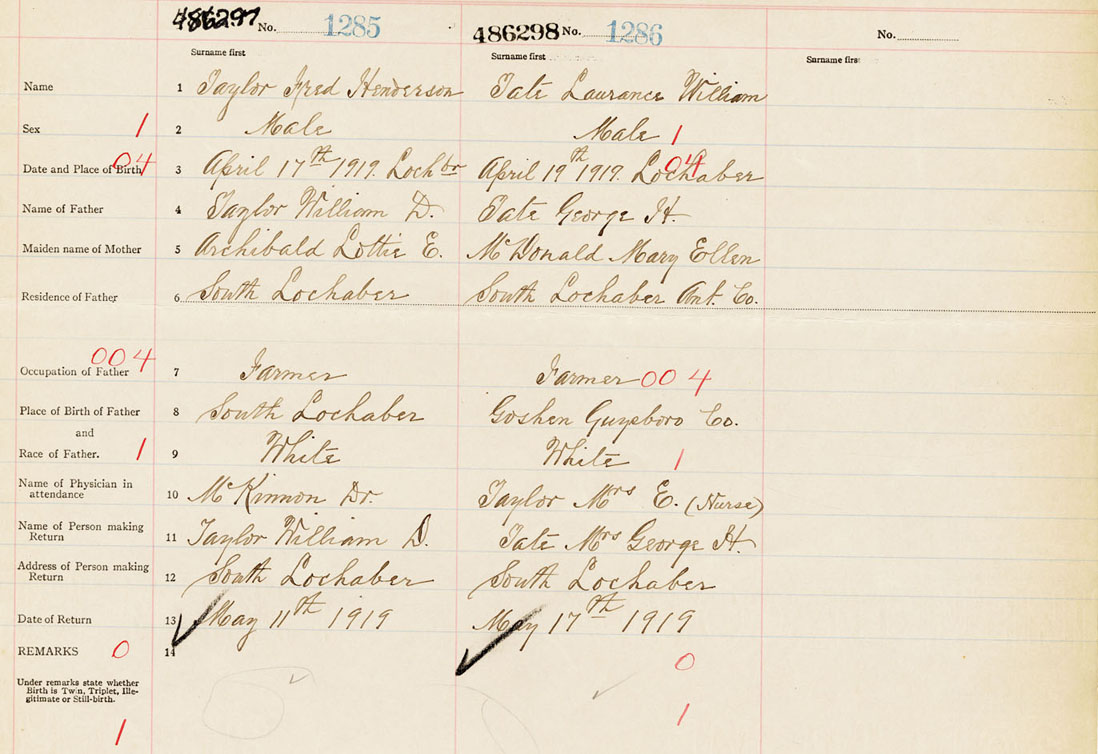 486297 No. 1285 486298 No. 1286 No.
Surname first Surname first Surname first
Name 1 Taylor Fred Henderson Tate Laurance William
Sex 1 2 Male Male 1
Date and Place of Birth 04 3 April 17th 1919. Lochbr April 19th 1919. Lochaber 04
Name of Father 4 Taylor William D. Tate George H.
Maiden name of Mother 5 Archibald Lottie E. McDonald Mary Ellen
Residence of Father 6 South Lochaber South Lochaber Ant. Co.
004
Occupation of Father 7 Farmer Farmer 004
Place of Birth of Father 8 South Lochaber Goshen Guysboro Co.
and
Race of Father. 1 9 White White 1
Name of Physician in
attendance 10 McKinnon Dr. Taylor Mrs E. (Nurse)
Name of Person making
Return 11 Taylor William D. Tate Mrs George H.
Address of Person making
Return 12 South Lochaber South Lochaber
Date of Return 13 May 11th 1919 May 17th 1919
REMARKS 0 14 0
Under remarks state whether
Birth is Twin, Triplet, Ille-
gitimate or Still-birth.
1 1